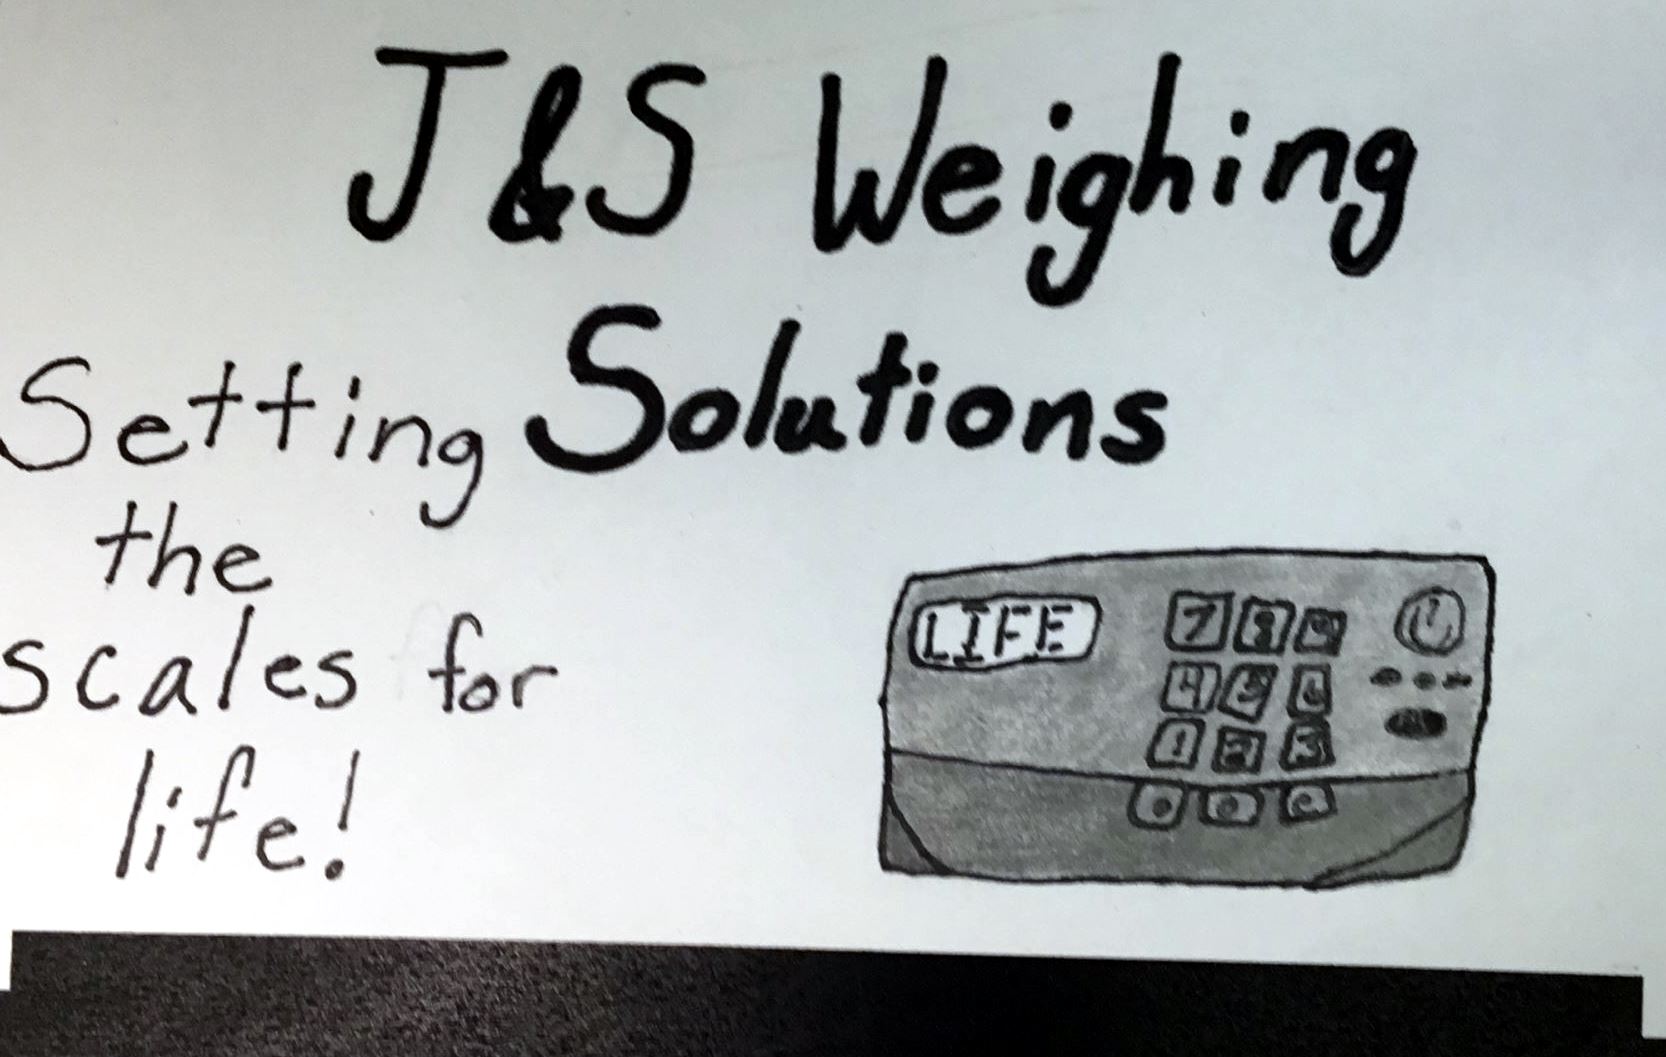 J&S Weighing
Solutions
Setting
the
scales for
life!
LIFE
7 8 9
4 5 6
1 2 3